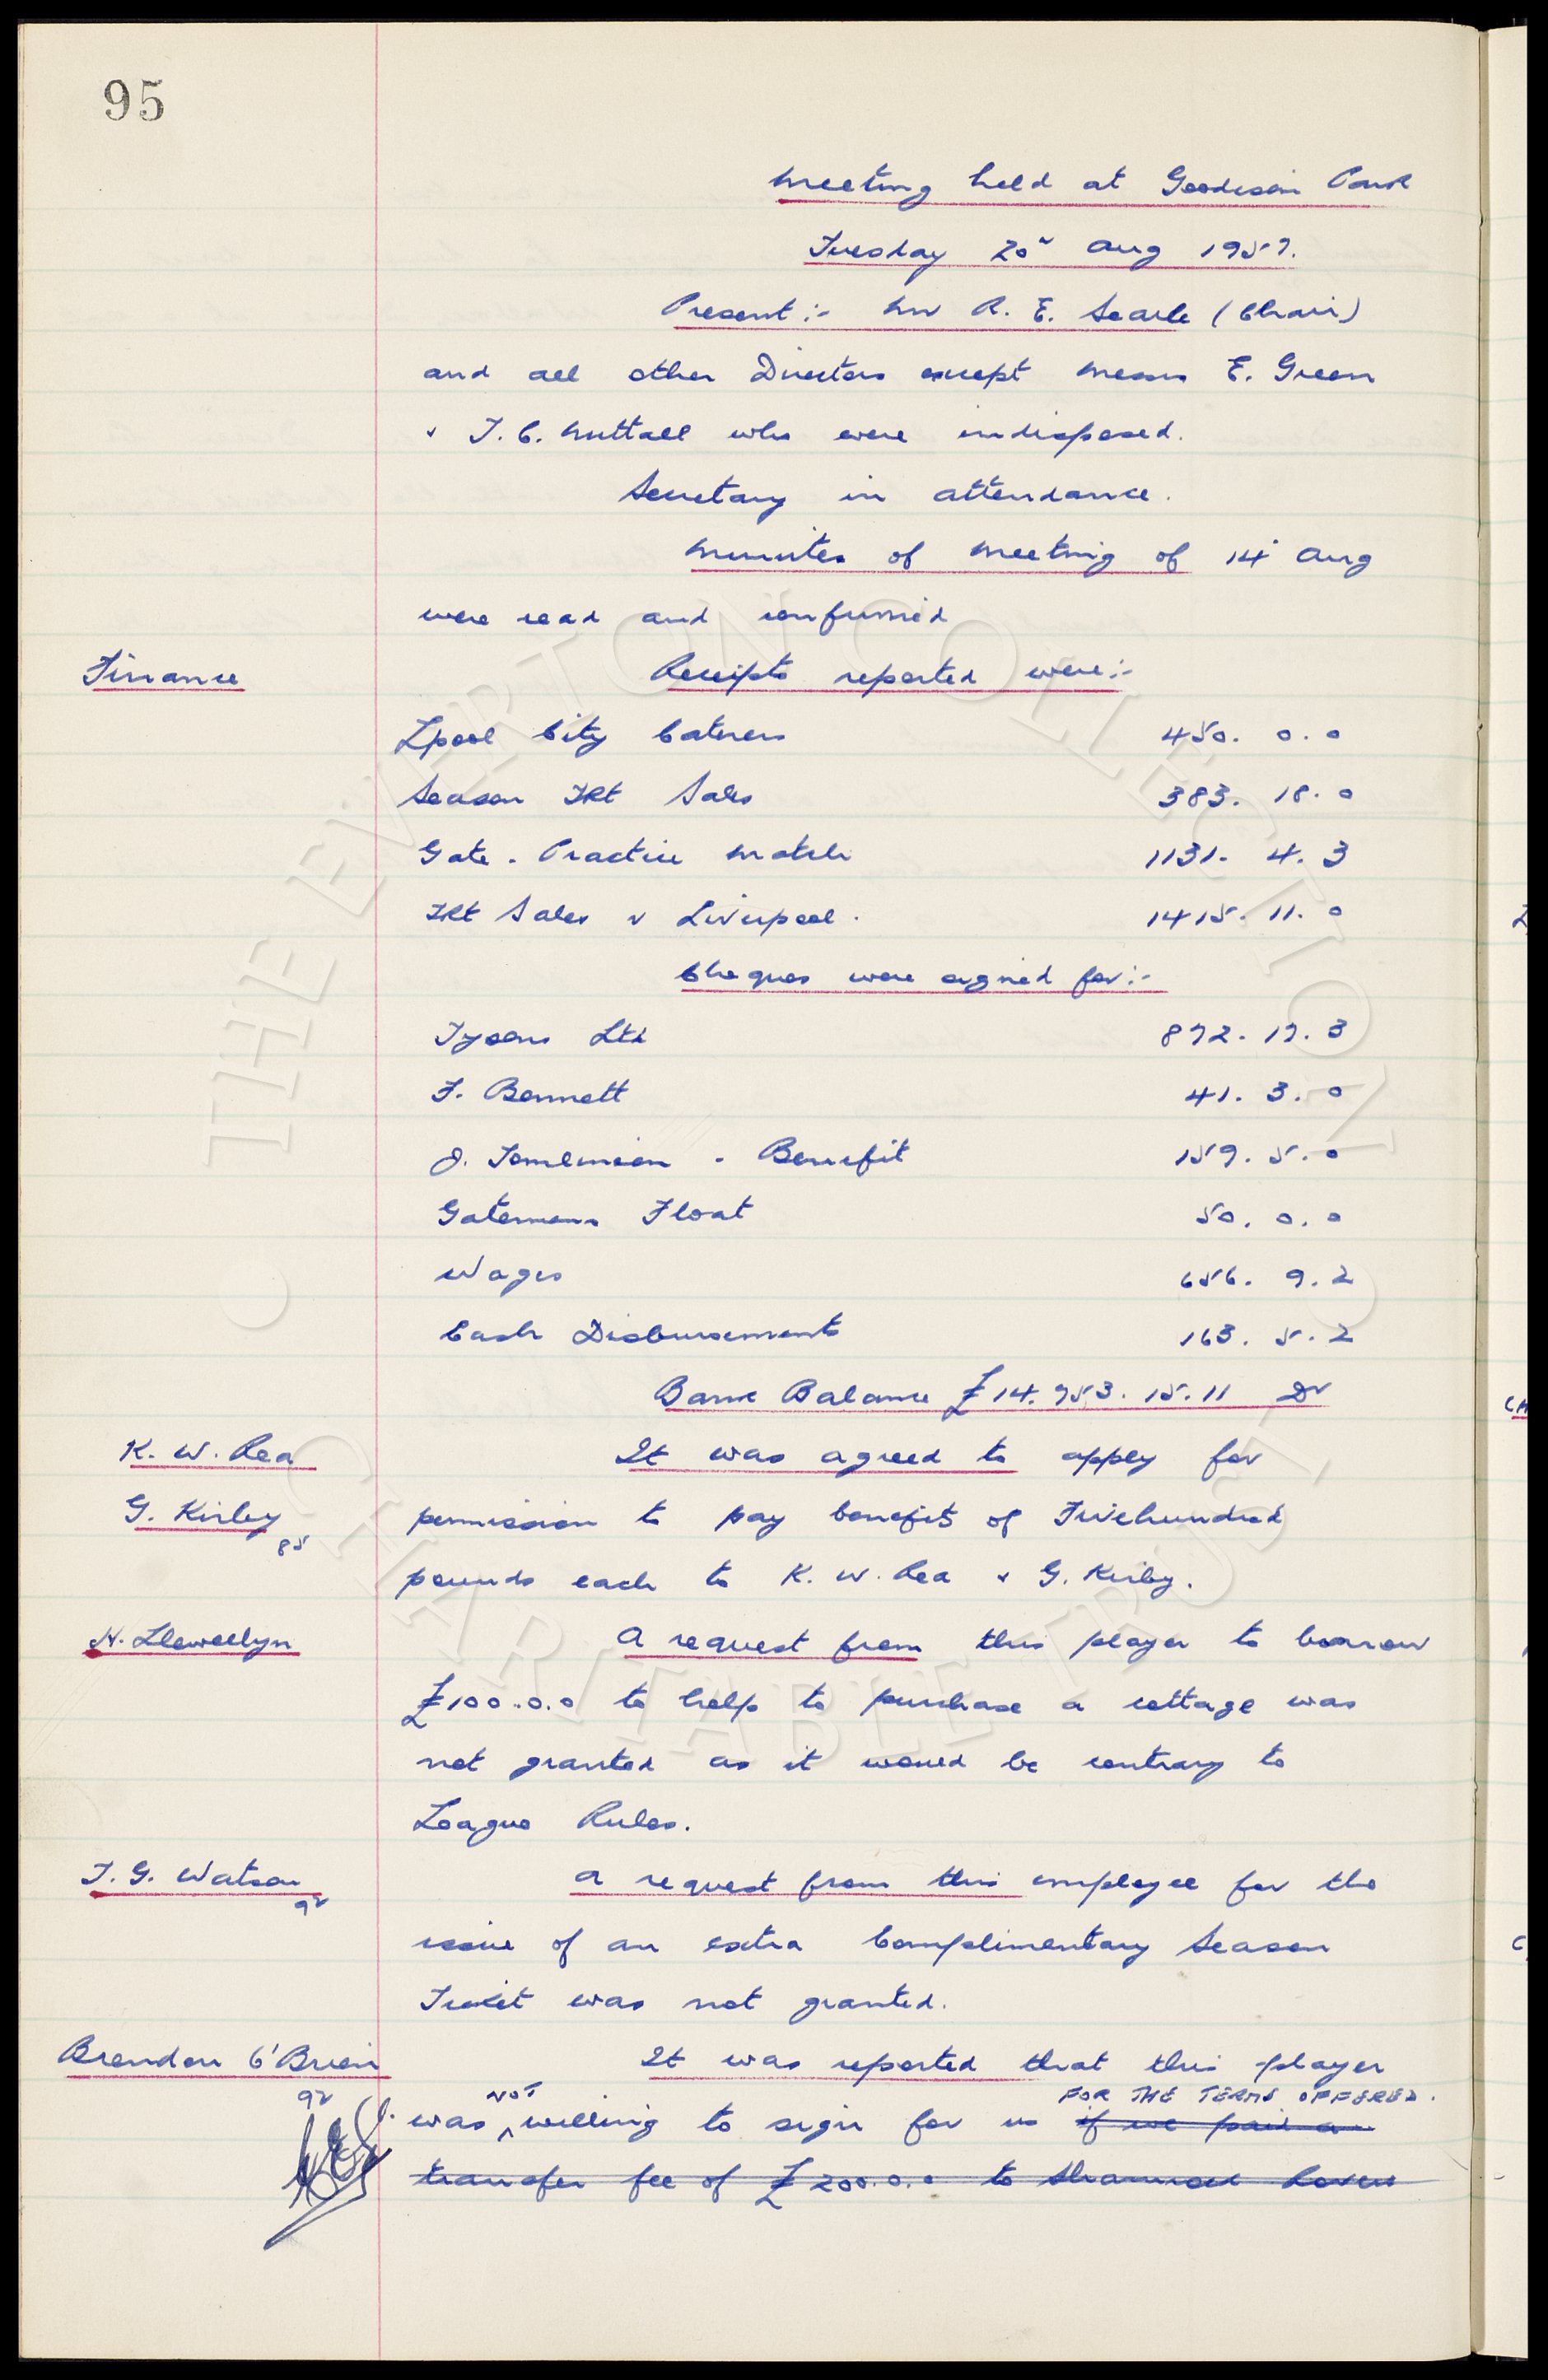 95
Meeting held at Goodison Park
Tuesday 20" Aug 1957.
Present :- Mr R. E. Searle (Chair)
and all other Directors except Messrs E. Green
& T. C. Nuttall who were indisposed.
Secretary in attendance.
Minutes of Meeting of 14" Aug
were read and confirmed
Finance Receipts reported were :-
Lpool City Caterers 450. 0. 0
Season Tkt Sales 383. 18. 0
Gate - Practice Match 1131. 4. 3
Tkt Sales v Liverpool. 1415. 11. 0
Cheques were signed for :-
Tysons Ltd 872. 17. 3
F. Bennett 41. 3. 0
J. Tomlinson - Benefit 159. 5. 0
Gatemens Float 50. 0. 0
Wages 656. 9. 2
Cash Disbursements 163. 5. 2
Bank Balance £14.953. 15. 11 Dr
K. W. Rea It was agreed to apply for
G. Kirby 85 permission to pay benefits of Fivehundred
pounds each to K. W. Rea & G. Kirby.
H. Llewellyn A request from this player to borrow
£100.0.0 to help to purchase a cottage was
not granted as it would be contrary to
League Rules.
T. G. Watson 92 A request from this employee for the
issue of an extra Complimentary Season
Ticket was not granted.
Brendan O'Brien It was reported that this player
92 was NOT willing to sign for us FOR THE TERMS OFFERED. if we paid a
transfer fee of £200.0.0 to Shamrock Rovers
THE EVERTON COLLECTION
CHARITABLE TRUST